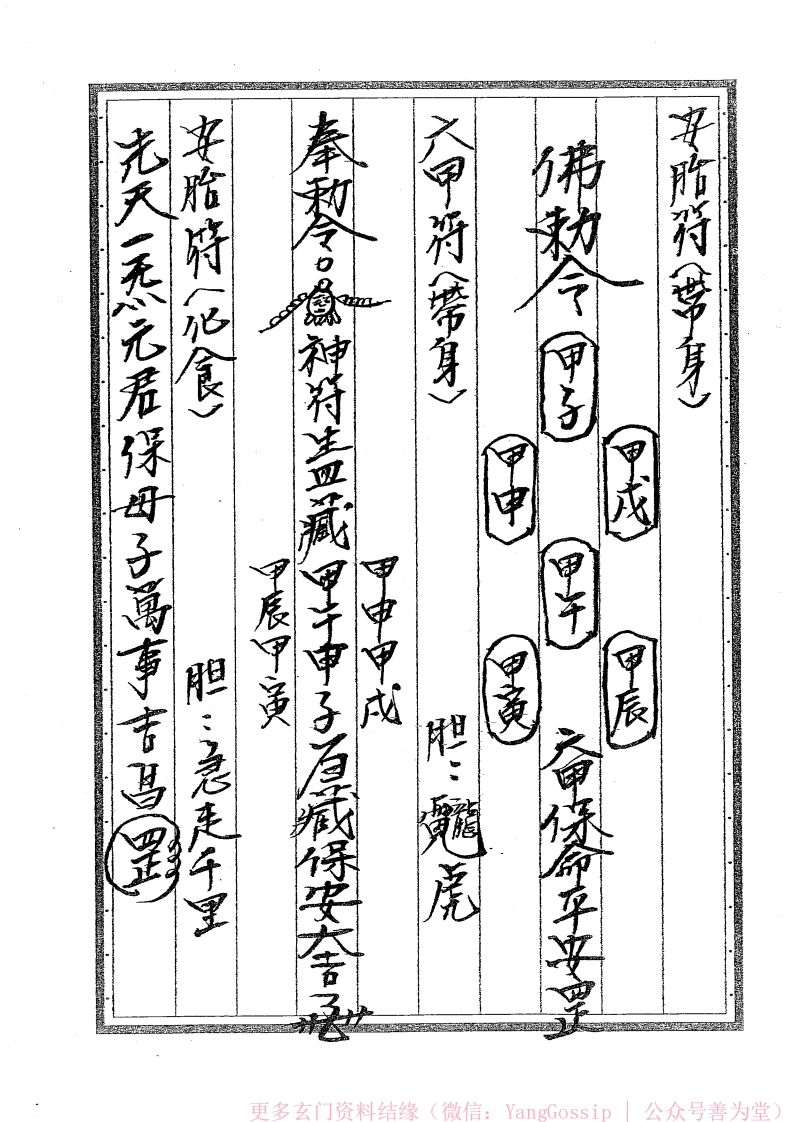 安胎符（帶身）
佛敕令 甲子 甲午 六甲保命平安罡
甲戌 甲辰
甲申 甲寅
六甲符（帶身）
胆：龍虎
奉勅令 神符 藏 甲午甲子 藏保安大吉
甲申甲戌
甲辰甲寅
安胎符（化食）
胆：急走千里
先天一炁元君保母子萬事吉昌罡
更多玄门资料结缘（微信：YangGossip | 公众号善为堂）